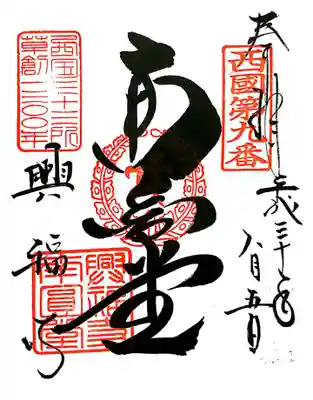 西國第九番
奉拝
平成三十年
八月五日
南円堂
西国三十三所
草創一三〇〇年
興福寺
興福寺
南圓堂